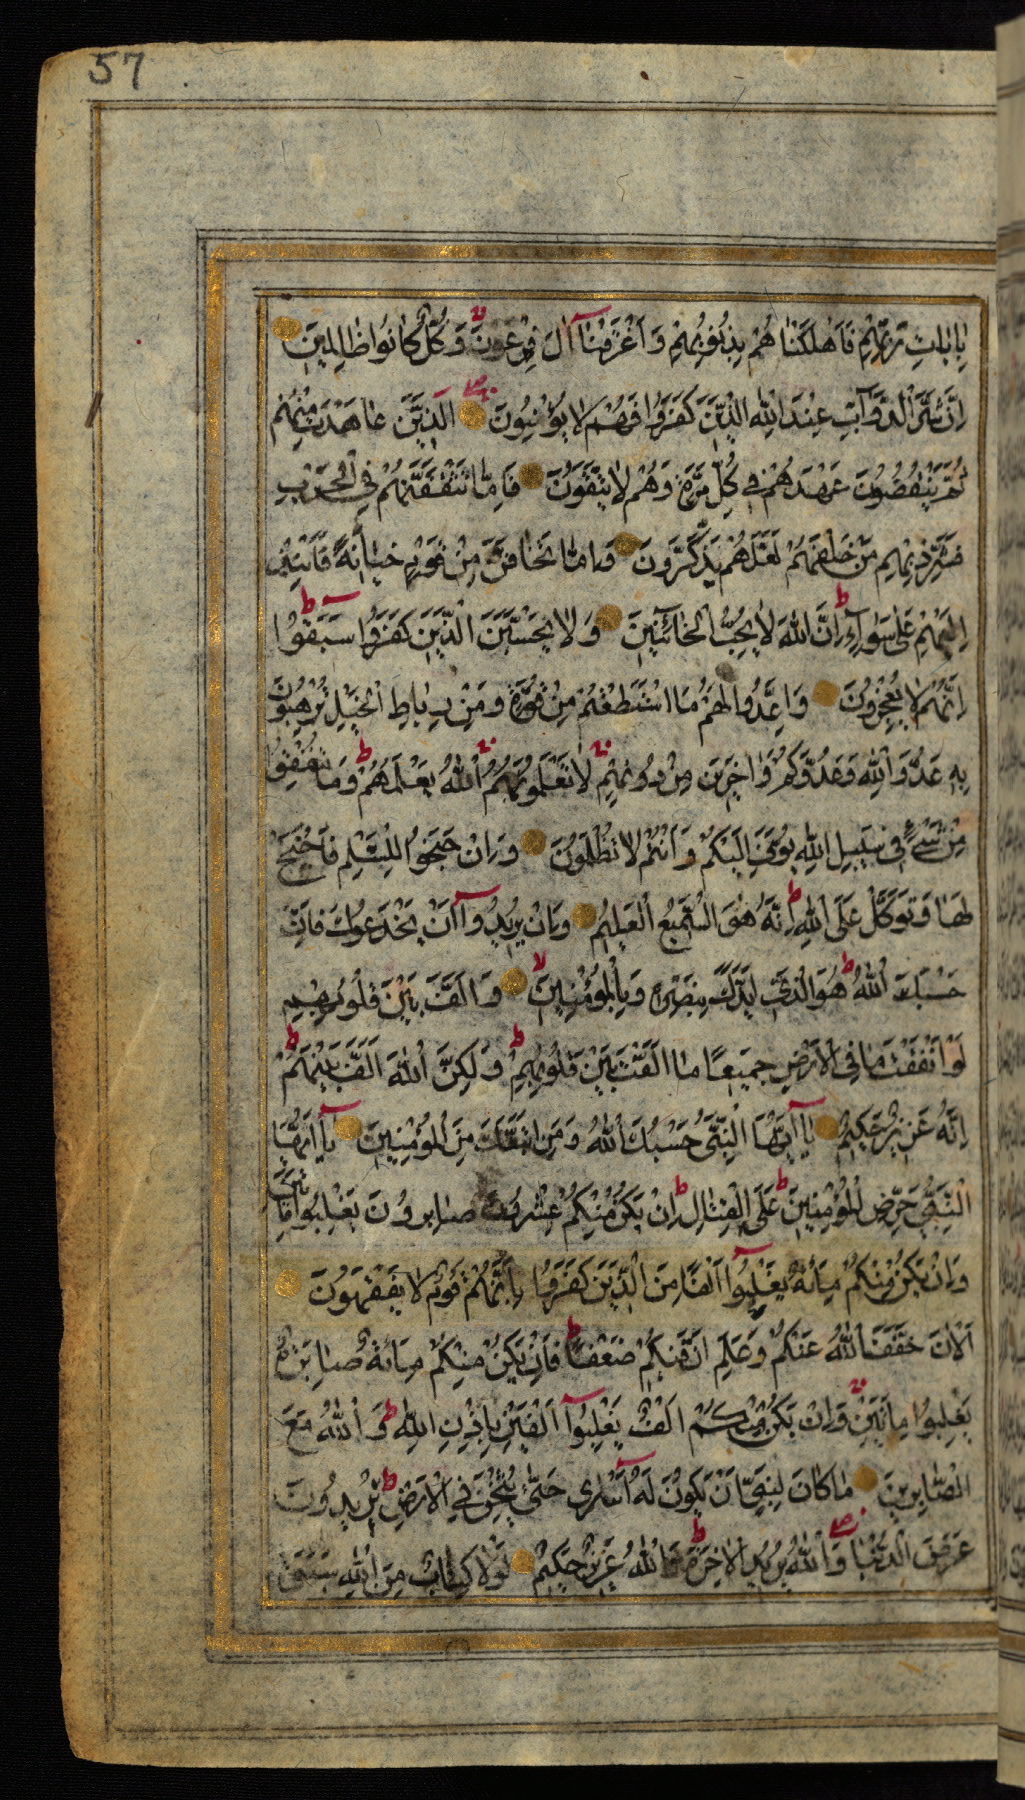 57
بِاٰيَاتِ رَبِّهِمْ فَاَهْلَكْنَا هُمْ بِذُنُوبِهِمْ وَاَغْرَقْنَا آلَ فِرْعَوْنَ وَكُلٌّ كَانُوا ظَالِمِينَ
اِنَّ شَرَّ الدَّوَآبِّ عِنْدَ اللهِ الَّذِينَ كَفَرُوا فَهُمْ لَا يُؤْمِنُونَ الَّذِينَ عَاهَدْتَ مِنْهُمْ
ثُمَّ يَنْقُضُونَ عَهْدَهُمْ فِي كُلِّ مَرَّةٍ وَهُمْ لَا يَتَّقُونَ فَاِمَّا تَثْقَفَنَّهُمْ فِي الْحَرْبِ
فَشَرِّدْ بِهِمْ مَنْ خَلْفَهُمْ لَعَلَّهُمْ يَذَّكَّرُونَ وَاِمَّا تَخَافَنَّ مِنْ قَوْمٍ خِيَانَةً فَانْبِذْ
اِلَيْهِمْ عَلٰى سَوَآءٍ اِنَّ اللهَ لَا يُحِبُّ الْخَائِنِينَ وَلَا يَحْسَبَنَّ الَّذِينَ كَفَرُوا سَبَقُوا
اِنَّهُمْ لَا يُعْجِزُونَ وَاَعِدُّوا لَهُمْ مَا اسْتَطَعْتُمْ مِنْ قُوَّةٍ وَمِنْ رِبَاطِ الْخَيْلِ تُرْهِبُونَ
بِهِ عَدُوَّ اللهِ وَعَدُوَّكُمْ وَاٰخَرِينَ مِنْ دُونِهِمْ لَا تَعْلَمُونَهُمُ اللهُ يَعْلَمُهُمْ وَمَا تُنْفِقُوا
مِنْ شَيْءٍ فِي سَبِيلِ اللهِ يُوَفَّ اِلَيْكُمْ وَاَنْتُمْ لَا تُظْلَمُونَ وَاِنْ جَنَحُوا لِلسَّلْمِ فَاجْنَحْ
لَهَا وَتَوَكَّلْ عَلَى اللهِ اِنَّهُ هُوَ السَّمِيعُ الْعَلِيمُ وَاِنْ يُرِيدُوا آ اَنْ يَخْدَعُوكَ فَاِنَّ
حَسْبَكَ اللهُ هُوَ الَّذِي اَيَّدَكَ بِنَصْرِهِ وَبِالْمُؤْمِنِينَ وَاَلَّفَ بَيْنَ قُلُوبِهِمْ
لَوْ اَنْفَقْتَ مَا فِي الْاَرْضِ جَمِيعًا مَا اَلَّفْتَ بَيْنَ قُلُوبِهِمْ وَلٰكِنَّ اللهَ اَلَّفَ بَيْنَهُمْ
اِنَّهُ عَزِيزٌ حَكِيمٌ يَا آ اَيُّهَا النَّبِيُّ حَسْبُكَ اللهُ وَمَنِ اتَّبَعَكَ مِنَ الْمُؤْمِنِينَ يَا آ اَيُّهَا
النَّبِيُّ حَرِّضِ الْمُؤْمِنِينَ عَلَى الْقِتَالِ اِنْ يَكُنْ مِنْكُمْ عِشْرُونَ صَابِرُونَ يَغْلِبُوا مِائَتَيْنِ
وَاِنْ يَكُنْ مِنْكُمْ مِائَةٌ يَغْلِبُوا آ اَلْفًا مِنَ الَّذِينَ كَفَرُوا بِاَنَّهُمْ قَوْمٌ لَا يَفْقَهُونَ
اَلْاٰنَ خَفَّفَ اللهُ عَنْكُمْ وَعَلِمَ اَنَّ فِيكُمْ ضَعْفًا فَاِنْ يَكُنْ مِنْكُمْ مِائَةٌ صَابِرَةٌ
يَغْلِبُوا مِائَتَيْنِ وَاِنْ يَكُنْ مِنْكُمْ اَلْفٌ يَغْلِبُوا آ اَلْفَيْنِ بِاِذْنِ اللهِ وَاللهُ مَعَ
الصَّابِرِينَ مَا كَانَ لِنَبِيٍّ اَنْ يَكُونَ لَهُ اَسْرٰى حَتّٰى يُثْخِنَ فِي الْاَرْضِ تُرِيدُونَ
عَرَضَ الدُّنْيَا وَاللهُ يُرِيدُ الْاٰخِرَةَ وَاللهُ عَزِيزٌ حَكِيمٌ لَوْلَا كِتَابٌ مِنَ اللهِ سَبَقَ